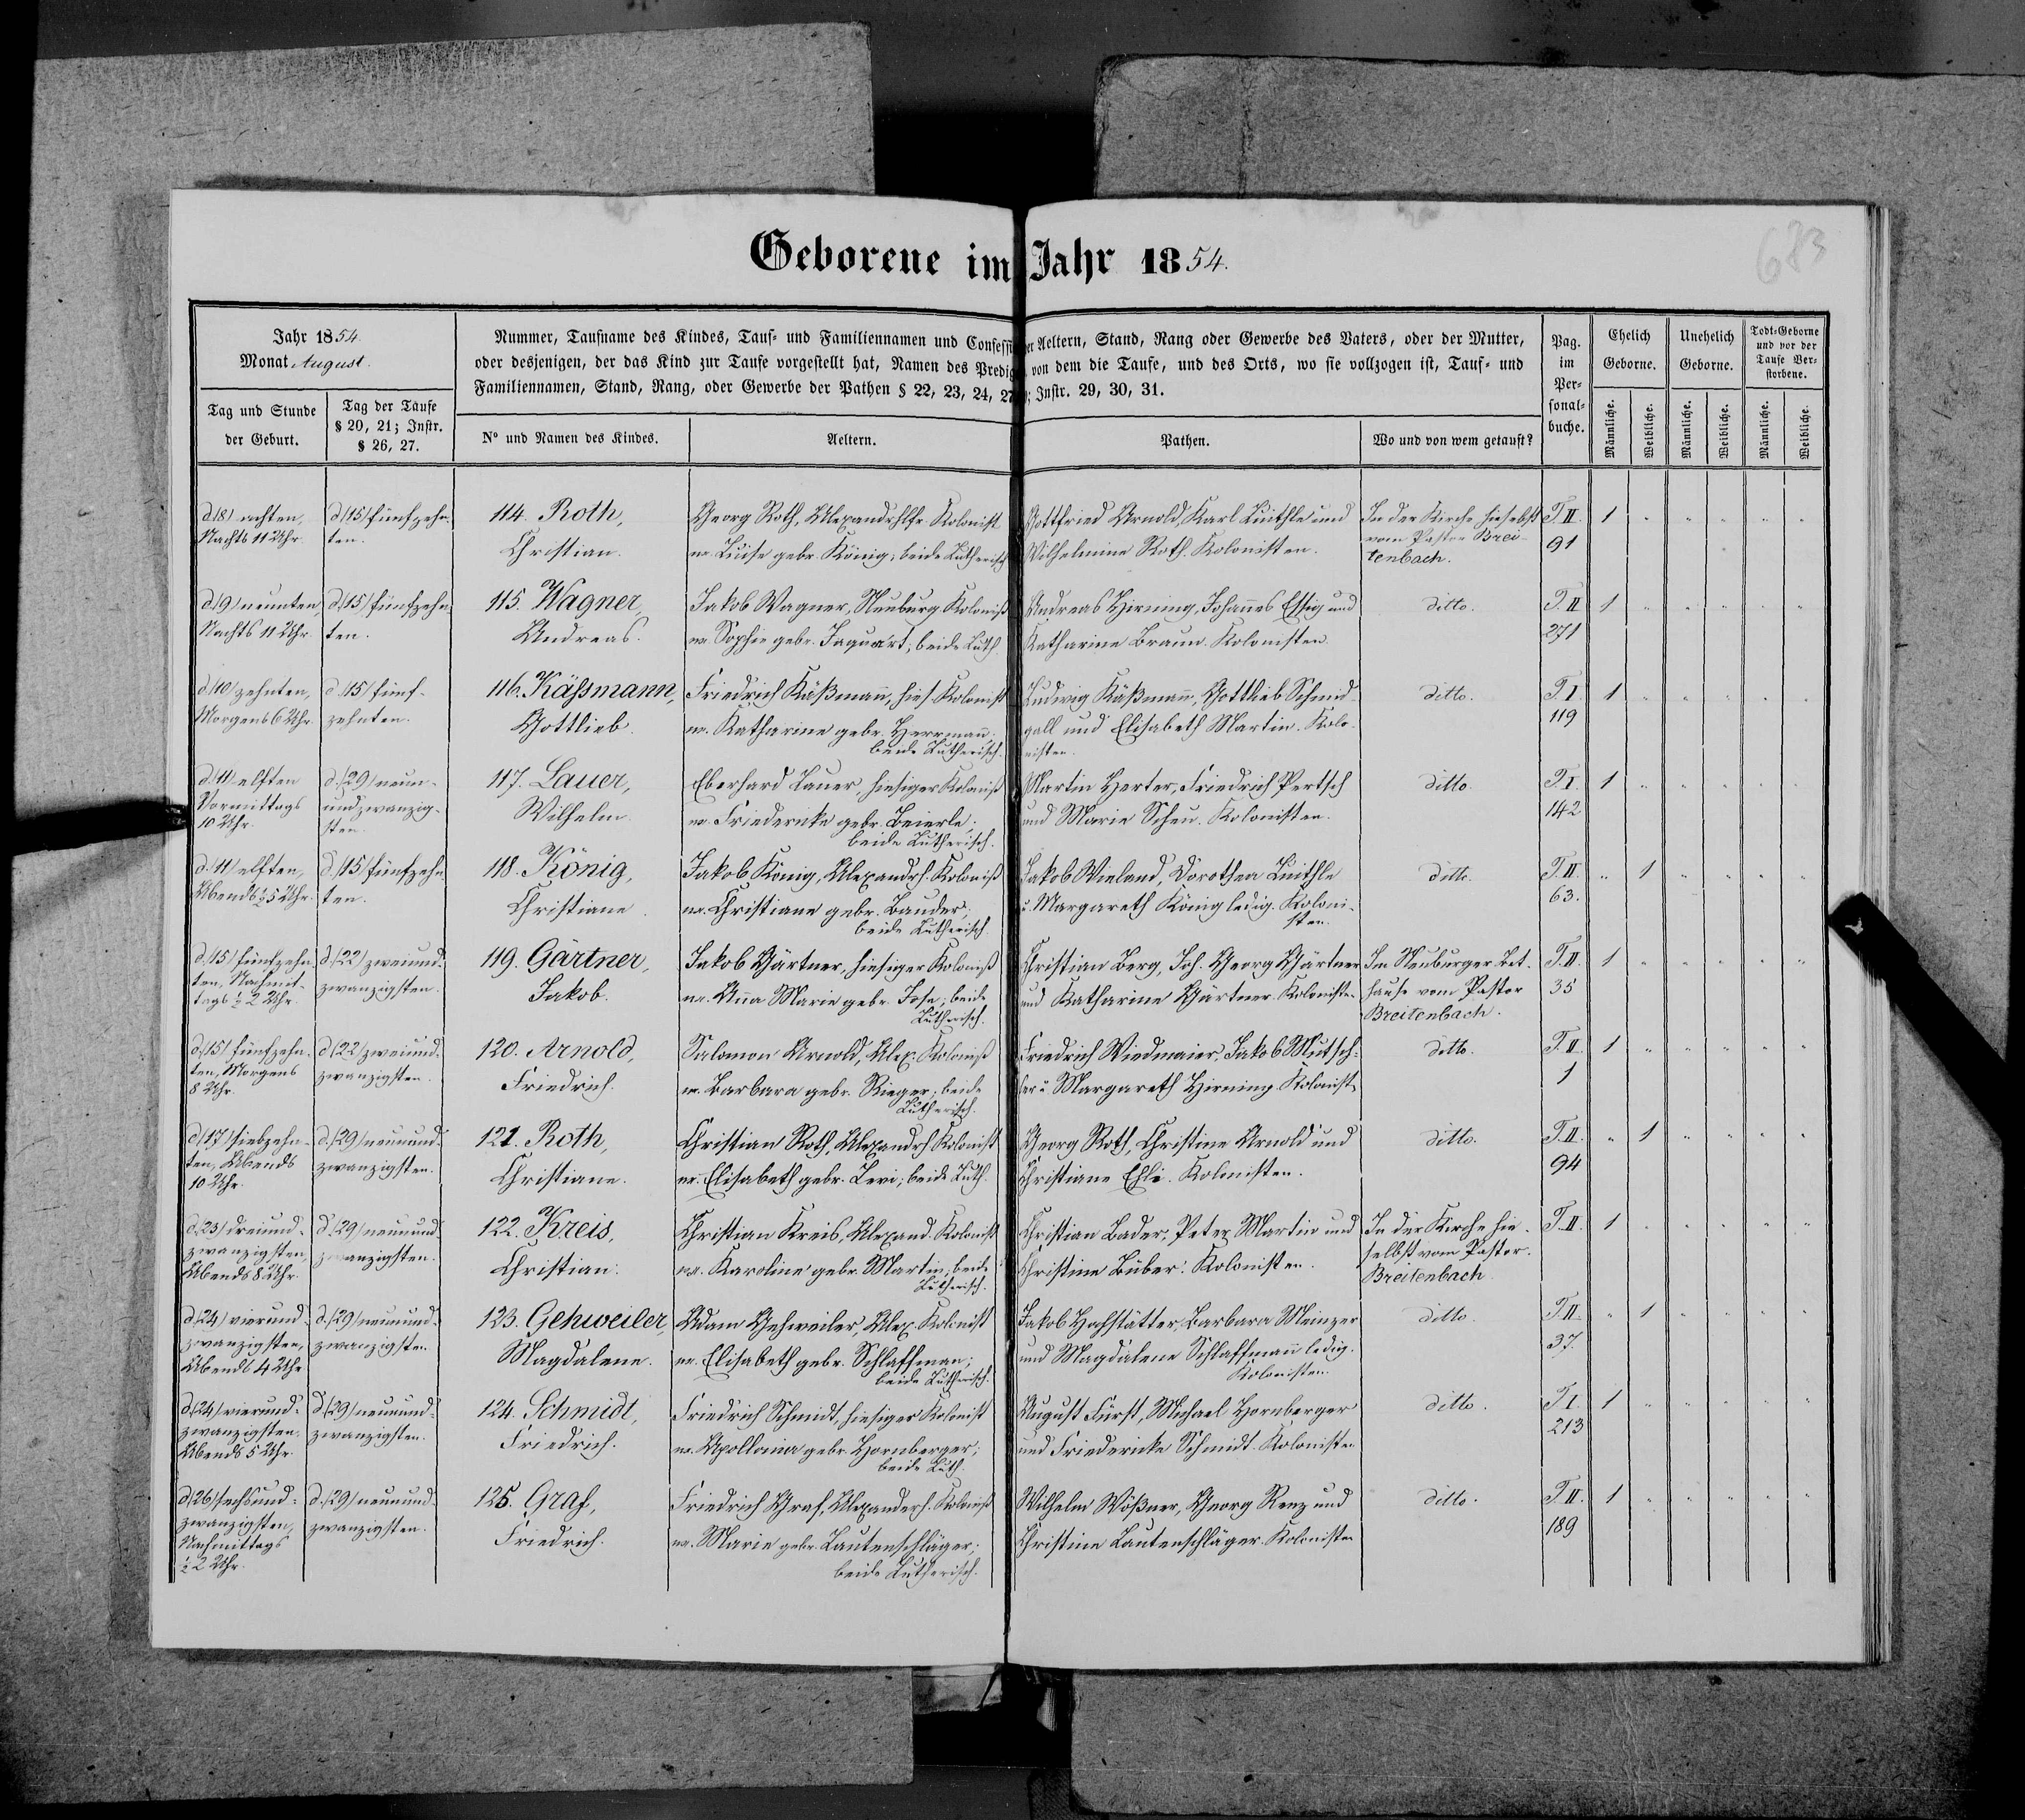 Geborene im Jahr 1854.
683
Jahr 1854.
Monat August.
Tag und Stunde
der Geburt.
Tag der Taufe
§ 20, 21; Instr.
§ 26, 27.
Nummer, Taufname des Kindes, Tauf- und Familiennamen und Confessi der Aeltern, Stand, Rang oder Gewerbe des Vaters, oder der Mutter,
oder desjenigen, der das Kind zur Taufe vorgestellt hat, Namen des Predig von dem die Taufe, und des Orts, wo sie vollzogen ist, Tauf- und
Familiennamen, Stand, Rang, oder Gewerbe der Pathen § 22, 23, 24, 27; Instr. 29, 30, 31.
No und Namen des Kindes.
Aeltern.
Pathen.
Wo und von wem getauft?
Pag.
im
Per-
sonal-
buche.
Ehelich
Geborne.
Unehelich
Geborne.
Todt-Geborne
und vor der
Taufe Ver-
storbene.
Männliche.
Weibliche.
Männliche.
Weibliche.
Männliche.
Weibliche.
d. (8) achten,
Nachts 11 Uhr.
d. (15) fünfzehn-
ten.
114. Roth,
Christian.
Georg Roth, Alexandrhlfr. Kolonist
ux. Luise gebr. König; beide Lutherisch
Gottfried Arnold, Karl Luithle und
Wilhelmine Roth. Kolonisten.
In der Kirche hieselbst
vom Pastor Brei-
tenbach.
T. II.
91
1
d. (9) neunten,
Nachts 11 Uhr.
d. (15) fünfzehn-
ten.
115. Wagner,
Andreas.
Jakob Wagner, Neuburg Kolonist
ux. Sophie gebr. Jaquart; beide Luth.
Andreas Hirning, Johannes Essig und
Katharine Braun. Kolonisten.
ditto.
T. II
271
1
d. (10) zehnten,
Morgens 6 Uhr.
d. (15) fünf-
zehnten.
116. Kässmann,
Gottlieb.
Friedrich Käßmann, hies. Kolonist
ux. Katharine gebr. Herrmann;
beide Lutherisch.
Ludwig Käßmann, Gottlieb Schmid-
gall und Elisabeth Martin. Kolo-
nisten.
ditto.
T. I.
119
1
d. (11) elften
Vormittags
10 Uhr.
d. (29) neun-
undzwanzig-
sten.
117. Lauer,
Wilhelm.
Eberhard Lauer, hiesiger Kolonist
ux. Friedericke gebr. Beierle;
beide Lutherisch.
Martin Herter, Friedrich Pertsch
und Marie Scheu. Kolonisten.
ditto.
T. I.
142
1
d. (11) elften,
Abends ½ 5 Uhr.
d. (15) fünfzehn-
ten.
118. König,
Christiane.
Jakob König, Alexandrh. Kolonist
ux. Christiane gebr. Bauder;
beide Lutherisch.
Jakob Wieland, Dorothea Luithle
u. Margareth König ledig. Koloni-
sten.
ditto.
T. II.
63.
1
d. (15) fünfzehn-
ten, Nachmit-
tags ½ 2 Uhr.
d. (22) zweiund-
zwanzigsten.
119. Gärtner,
Jakob.
Jakob Gärtner, hiesiger Kolonist
ux. Anna Marie gebr. Jose; beide
Lutherisch.
Christian Berg, Joh. Georg Gärtner
und Katharine Gärtner. Kolonisten
Im Neuburger Bet-
hause vom Pastor
Breitenbach.
T. II.
35
1
d. (15) fünfzehn-
ten, Morgens
8 Uhr.
d. (22) zweiund-
zwanzigsten.
120. Arnold,
Friedrich.
Salomon Arnold, Alex. Kolonist
ux. Barbara gebr. Rieger; beide
Lutherisch.
Friedrich Wiedmaier, Jakob Mutsch-
ler u. Margareth Hirning. Kolonist.
ditto.
T. II.
1
1
d. (17) siebzehn-
ten, Abends
10 Uhr.
d. (29) neunund-
zwanzigsten.
121. Roth,
Christiane.
Christian Roth, Alexandrh. Kolonist
ux. Elisabeth gebr. Levi; beide Luth.
Georg Roth, Christine Arnold und
Christiane Ehli. Kolonisten.
ditto.
T. II.
94
1
d. (23) dreiund-
zwanzigsten,
Abends 8 Uhr.
d. (29) neunund-
zwanzigsten.
122. Kreis,
Christian.
Christian Kreis, Alexand. Kolonist
ux. Karoline gebr. Martin; beide
Lutherisch.
Christian Bader, Peter Martin und
Christine Büber. Kolonisten.
In der Kirche hie-
selbst vom Pastor.
Breitenbach.
T. II.
1
d. (24) vierund-
zwanzigsten,
Abends 4 Uhr
d. (29) neunund-
zwanzigsten.
123. Gehweiler,
Magdalene.
Adam Gehweiler, Alex. Kolonist
ux. Elisabeth gebr. Schlaffman;
beide Lutherisch.
Jakob Hochstätter, Barbara Meinzer
und Magdalene Schlaffmann ledig.
Kolonisten.
ditto.
T. II.
37.
1
d. (24) vierund-
zwanzigsten.
Abends 5 Uhr.
d. (29) neunund-
zwanzigsten.
124. Schmidt,
Friedrich.
Friedrich Schmidt, hiesiger Kolonist
ux. Apollonia gebr. Hornberger;
beide Luth.
August Fürst, Michael Hornberger
und Friedericke Schmidt. Kolonisten
ditto.
T. I.
213
1
d. (26) sechsund-
zwanzigsten,
Nachmittags
½ 2 Uhr.
d. (29) neunund-
zwanzigsten.
125. Graf,
Friedrich.
Friedrich Graf, Alexanderh. Kolonist
ux. Marie gebr. Lautenschläger;
beide Lutherisch.
Wilhelm Wößner, Georg Renz und
Christine Lautenschläger. Kolonisten
ditto.
T. II.
189
1